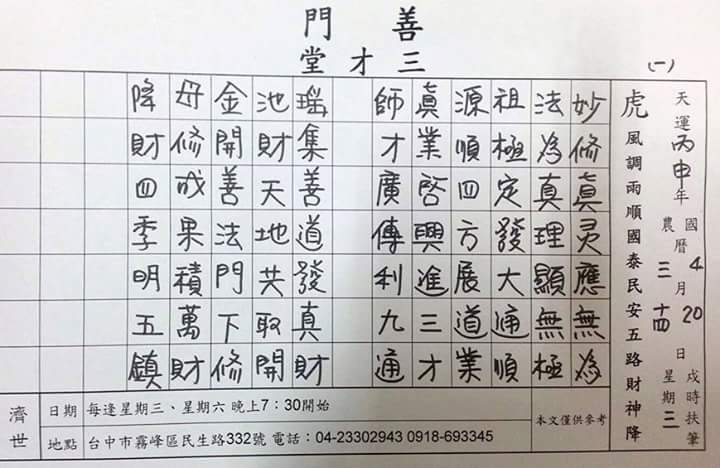 善門
三才堂
(一)
天運丙申年 國曆4月20日 農三十四 星期三 戌時扶筆
虎風調雨順國泰民安五路財神降
妙修真灵應無為
法為真理顯無極
祖極定發大通順
源順四方展道業
真業啓興進三才
師才廣傳利九通
瑤集善道發真財
池財天地共取開
金開善法門下修
母修成果積萬財
降財四季明五鎮
濟世
日期 每逢星期三、星期六 晚上7：30開始
地點 台中市霧峰區民生路332號 電話：04-23302943 0918-693345
本文僅供參考